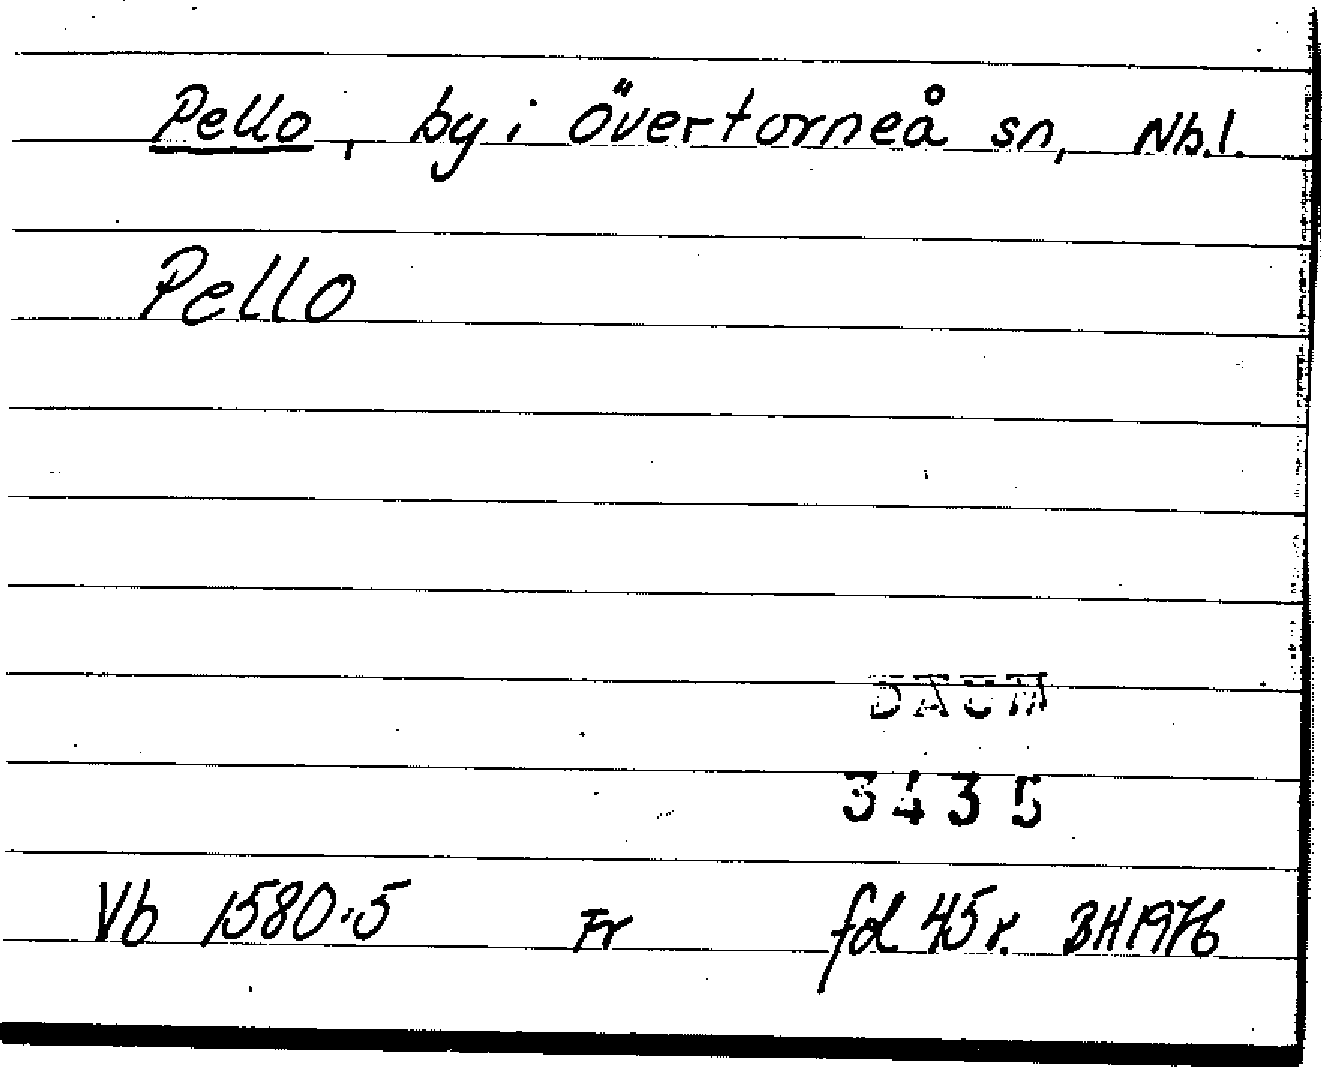 Pello, by i Övertorneå sn, Nb.l.
Pello
DAUM
3435
Vb 1580:5 Fr fol 45 r. BH 1976